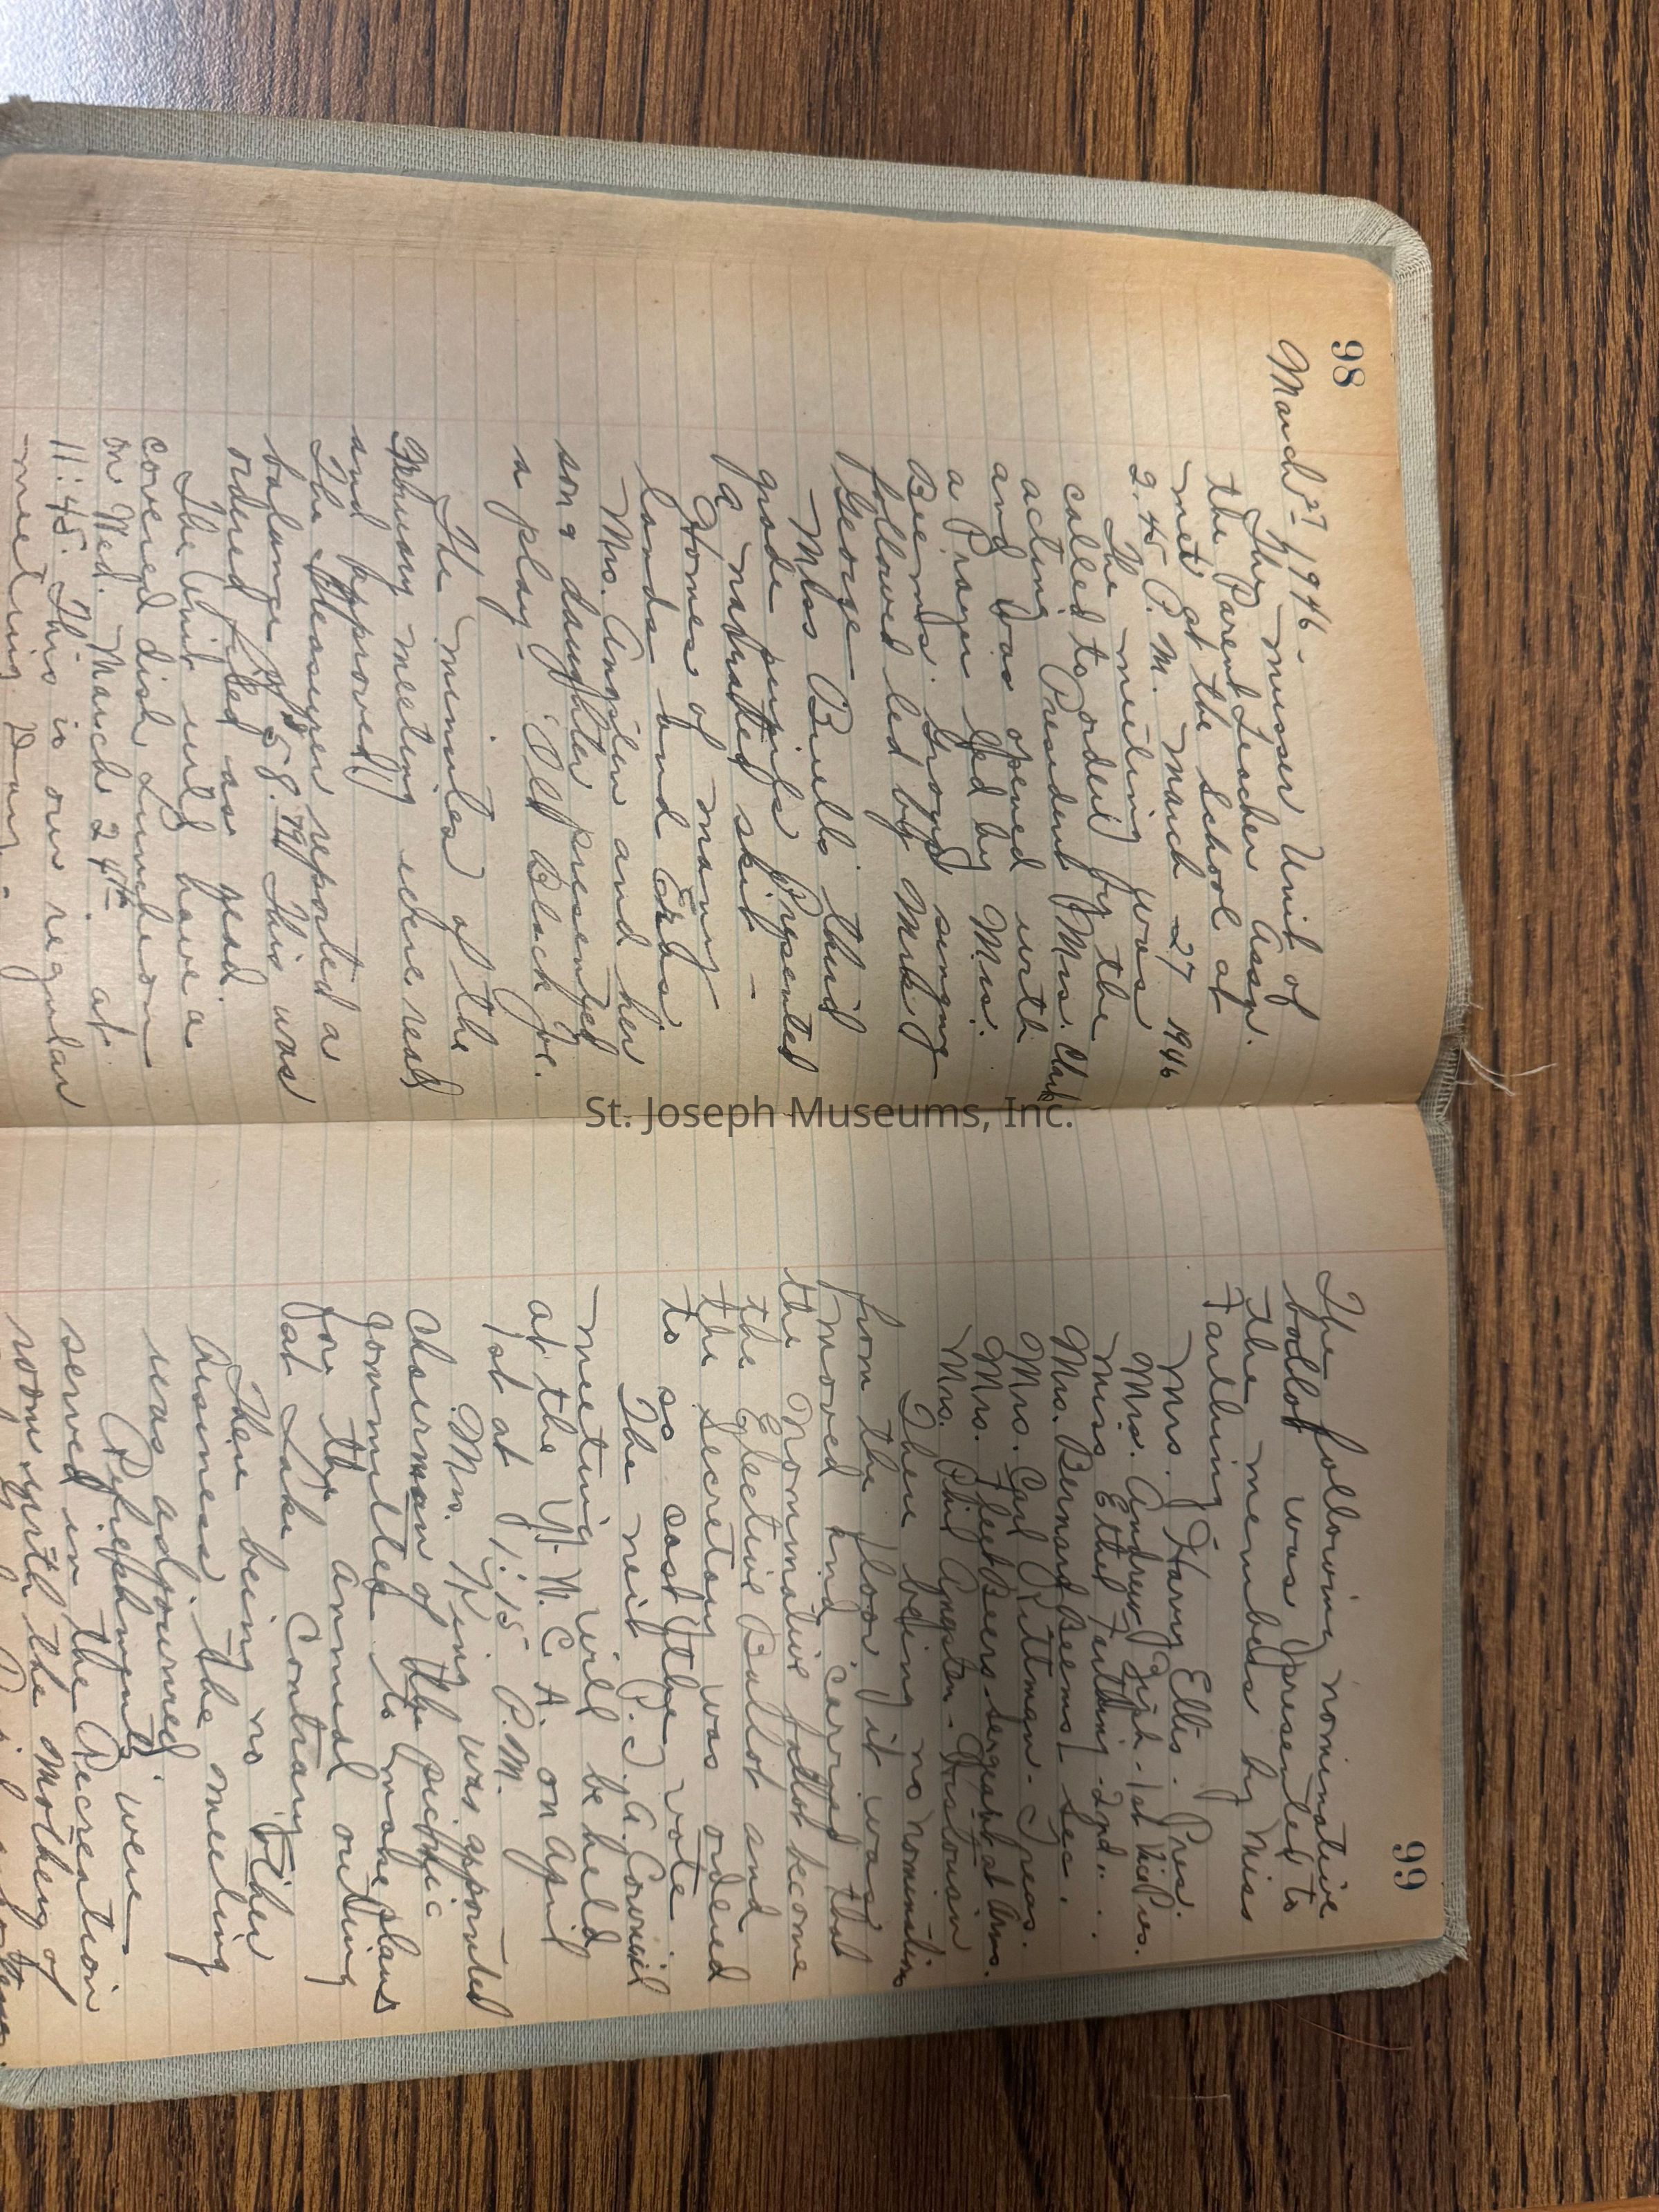 98
March 27 1946 -
The Musser Unit of
the Parent Teacher Assn.
met at the school at
2:45 P.M. March 27 1946
The meeting was
called to order by the
acting President Mrs. Clark
and was opened with
a Prayer led by Mrs.
Beems. Group singing
followed led by Miss
George -
Miss Buells third
grade pupils presented
a narrated skit -
Homes of many
lands and Eras.
Mrs. Angsten and her
son & daughter presented
a play - Old Black Joe.
The minutes of the
February meeting were read
and approved
The Treasurer reported a
balance of $58.79 This was
ordered filed as read.
The Unit will have a
covered dish Luncheon
on Wed. March 24th at
11:45. This is our regular
meeting Day -
99
The following nominative
ballot was presented to
the members by Miss
Farthing
Mrs. Harry Ellis - Pres.
Mrs. Andrew - 1st Vice Pres.
Miss Ethel Farthing - 2nd " "
Mrs. Bernard Beems - Sec.
Mrs. Carl Ritman - Treas.
Mrs. Fleet Beers - Sergeant at Arms.
Mrs. Phil Angsten - Historian
There being no nominations
from the floor, it was
moved and carried that
the Nominative ballot become
the Elective Ballot and
the Secretary was ordered
to so cast the vote
The next P.T.A. Council
meeting will be held
at the Y.W.C.A. on April
1st at 1:15 P.M.
Mrs. King was appointed
chairman of the picnic
committee to make plans
for the annual outing
at Lake Contrary
There being no other
business, the meeting
was adjourned.
Refreshments were
served in the Recreation
room with the mothers of
St. Joseph Museums, Inc.